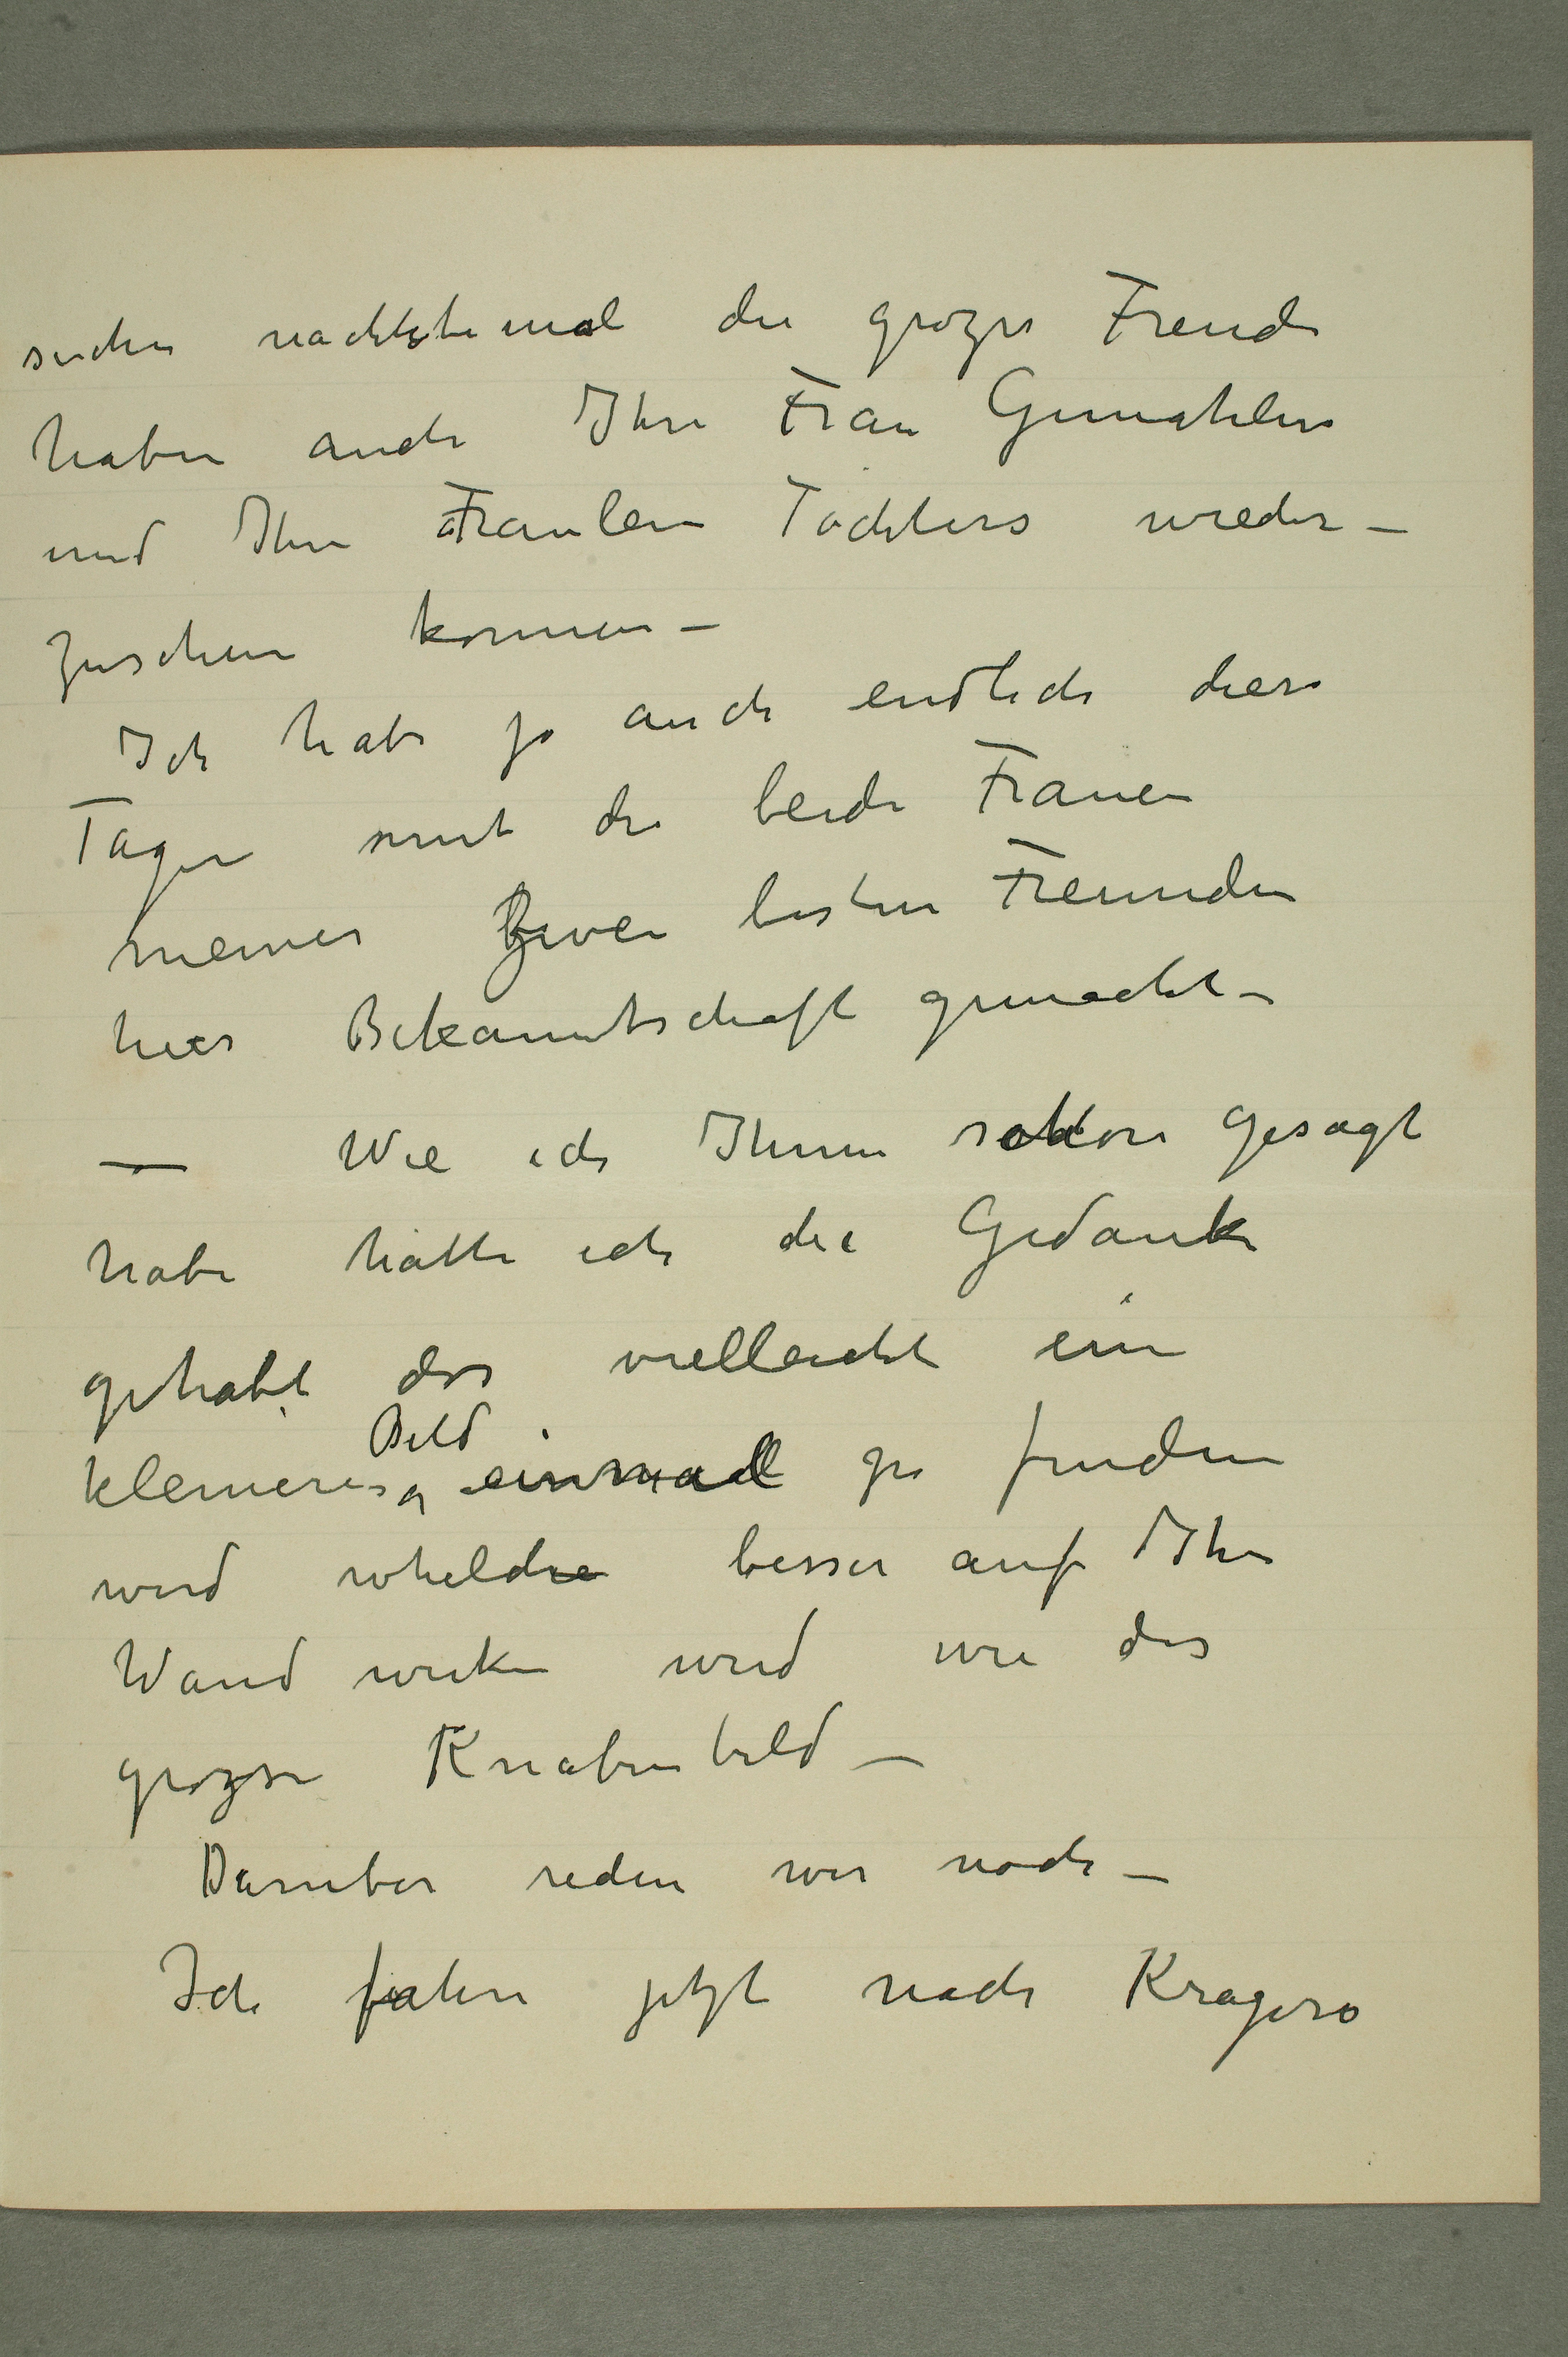 sicher nachhstemal die grozse Freude
haben auch Ihre Frau Gemahlin
und Ihre Fraulein Tochters wieder –
zusehen konnen –
Ich habe ja auch endlich diese
Tagen mit die beide Frauen
meiner zwei besten Freunden
hier Bekanntschaft gemacht –
— Wie ich Ihnen schon gesagt
habe hatte ich die Gedanke
gehabt das vielleicht ein
kleineres Bild einmal zu finden
wird whelche besser auf Ihre
Wand wirken wird wie das
grozse Knabenbild –
Daruber reden wir noch –
Ich fahre jetzt nach Kragerø